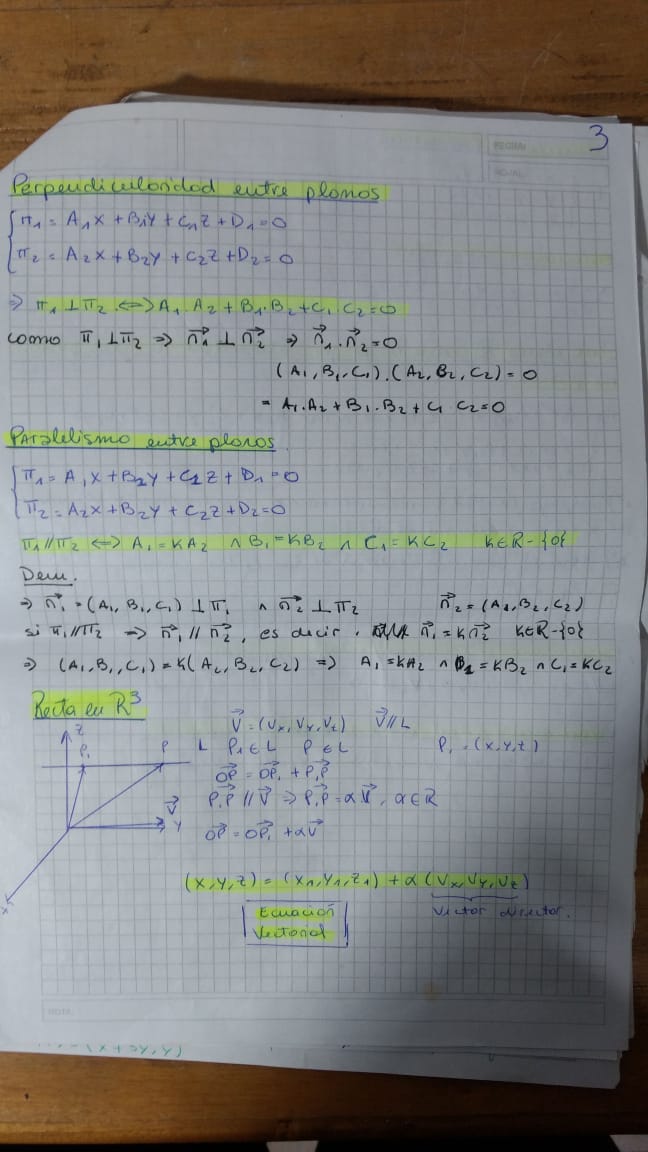 3
FECHA:
HOJA:
Perpendicularidad entre planos
π₁ = A₁X + B₁Y + C₁Z + D₁ = 0
π₂ = A₂X + B₂Y + C₂Z + D₂ = 0
⇒ π₁ ⊥ π₂ ⟺ A₁ . A₂ + B₁ . B₂ + C₁ C₂ = 0
como π₁ ⊥ π₂ ⇒ n₁⃗ ⊥ n₂⃗ ⇒ n⃗₁ . n⃗₂ = 0
(A₁, B₁, C₁) . (A₂, B₂, C₂) = 0
= A₁ . A₂ + B₁ . B₂ + C₁ C₂ = 0
Paralelismo entre planos
π₁ = A₁X + B₂Y + C₁Z + D₁ = 0
π₂ = A₂X + B₂Y + C₂Z + D₂ = 0
π₁ // π₂ ⟺ A₁ = KA₂ ∧ B₁ = KB₂ ∧ C₁ = KC₂ K∈R-{0}
Dem.
⇒ n₁⃗ = (A₁, B₁, C₁) ⊥ π₁ ∧ n₂⃗ ⊥ π₂ n⃗₂ = (A₂, B₂, C₂)
si π₁ // π₂ ⇒ n⃗₁ // n⃗₂, es decir, n⃗₁ = k n⃗₂ K∈R-{0}
⇒ (A₁, B₁, C₁) = K(A₂, B₂, C₂) ⇒ A₁ = KA₂ ∧ B₁ = KB₂ ∧ C₁ = KC₂
Recta en R³
Z P₁ P L V⃗ Y X
V⃗ = (Vx, Vy, Vz) V⃗ // L
P₁ ∈ L P ∈ L P₁ = (x, y, z)
OP⃗ = OP₁⃗ + P₁P⃗
P₁P⃗ // V⃗ ⇒ P₁P⃗ = αV⃗, α∈R
OP⃗ = OP₁⃗ + αV⃗
(x, y, z) = (x₁, y₁, z₁) + α (Vx, Vy, Vz)
Ecuación
Vectorial
Vector director.
NOTA: